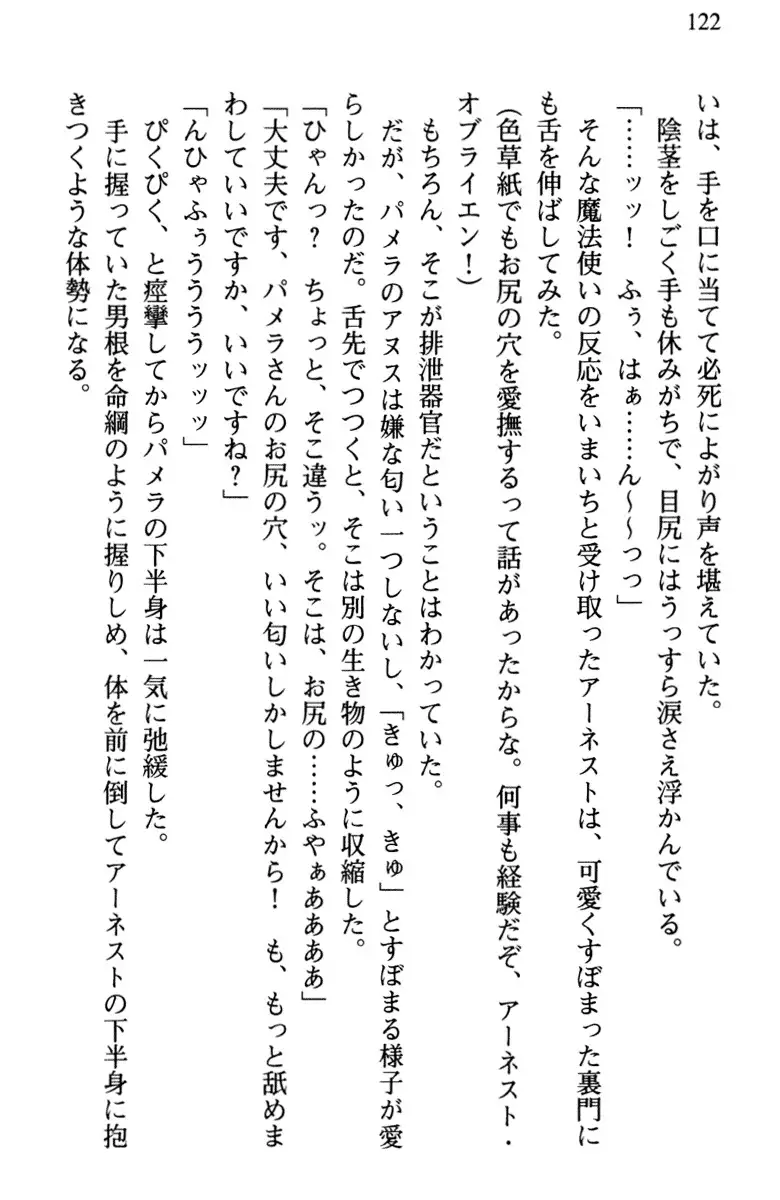 122
いは、手を口に当てて必死によがり声を堪えていた。
陰茎をしごく手も休みがちで、目尻にはうっすら涙さえ浮かんでいる。
「……ッッ！　ふぅ、はぁ……ん～～っっ」
そんな魔法使いの反応をいまいちと受け取ったアーネストは、可愛くすぼまった裏門に
も舌を伸ばしてみた。
（色草紙でもお尻の穴を愛撫するって話があったからな。何事も経験だぞ、アーネスト・
オブライエン！）
もちろん、そこが排泄器官だということはわかっていた。
だが、パメラのアヌスは嫌な匂い一つしないし、「きゅっ、きゅ」とすぼまる様子が愛
らしかったのだ。舌先でつつくと、そこは別の生き物のように収縮した。
「ひゃんっ？　ちょっと、そこ違うッ。そこは、お尻の……ふやぁああああ」
「大丈夫です、パメラさんのお尻の穴、いい匂いしかしませんから！　も、もっと舐めま
わしていいですか、いいですね？」
「んひゃふぅうううッッッ」
ぴくぴく、と痙攣してからパメラの下半身は一気に弛緩した。
手に握っていた男根を命綱のように握りしめ、体を前に倒してアーネストの下半身に抱
きつくような体勢になる。